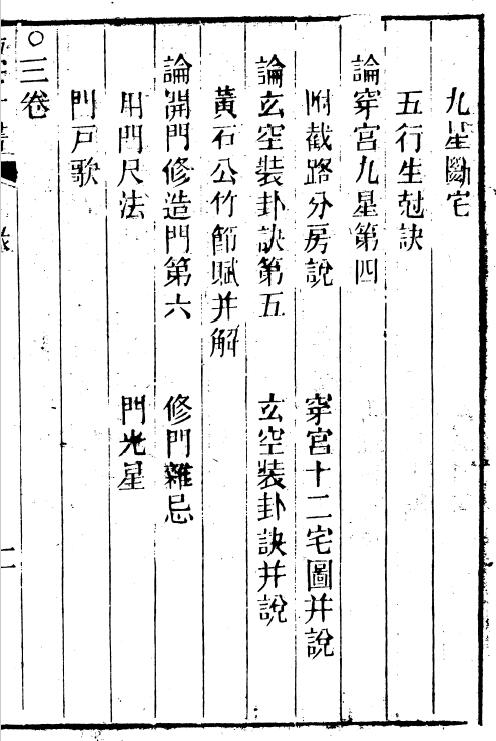 九星斷宅
五行生尅訣
論穿宮九星第四
附截路分房說　穿宮十二宅圖并說
論玄空裝卦訣第五　玄空裝卦訣并說
黃石公竹節賦并解
論開門修造門第六　修門雜忌
用門尺法　門光星
門戶歌
○三卷
二